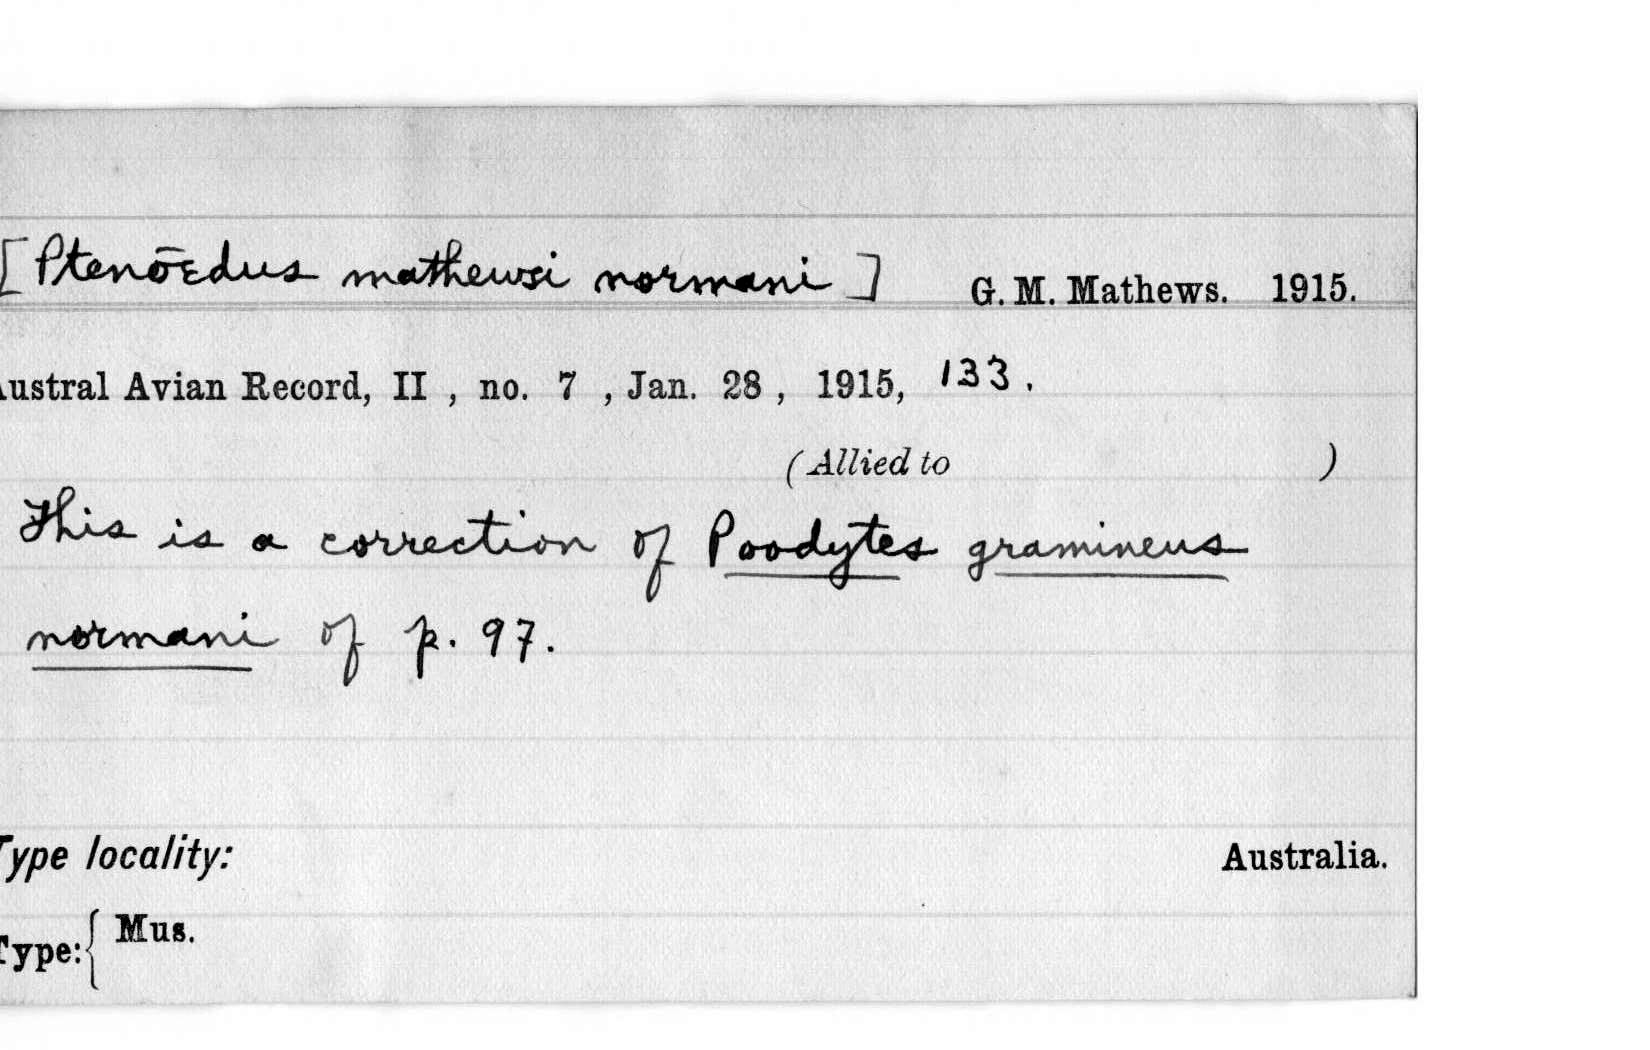 [Ptenōedus mathewsi normani] G. M. Mathews. 1915.
Austral Avian Record, II , no. 7 , Jan. 28 , 1915, 133.
(Allied to )
This is a correction of Poodytes gramineus
normani of p. 97.
Type locality: Australia.
Type: { Mus.